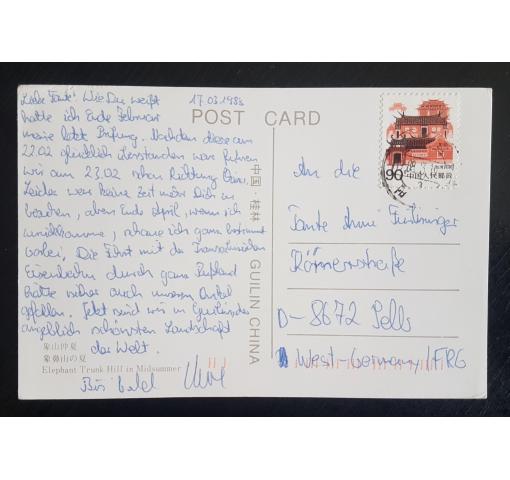 Liebe Tante! Wie Du weißt 17.03.1988
hatte ich Ende Februar
meine letzt Prüfung. Nachdem diese am
22.02 glücklich überstanden war fuhren
wir am 23.02 schon Richtung China.
Leider war keine Zeit mehr Dich zu
besuchen, aber Ende April, wenn ich
zurückkomme, schaue ich ganz bestimmt
vorbei. Die Fahrt mit der Transsibirischen
Eisenbahn durch ganz Rußland
hätte sicher auch unserem Onkel
gefallen. Jetzt sind wir in Guilin, der
angeblich schönsten Landschaft
der Welt.
Bis bald
象山仲夏
象鼻山の夏
Elephant Trunk Hill in Midsummer
POST CARD
中国·桂林 GUILIN CHINA
90 中国人民邮政
An die
Tante Anni
Römerstraße
D-8672 Selb
West-Germany/FRG